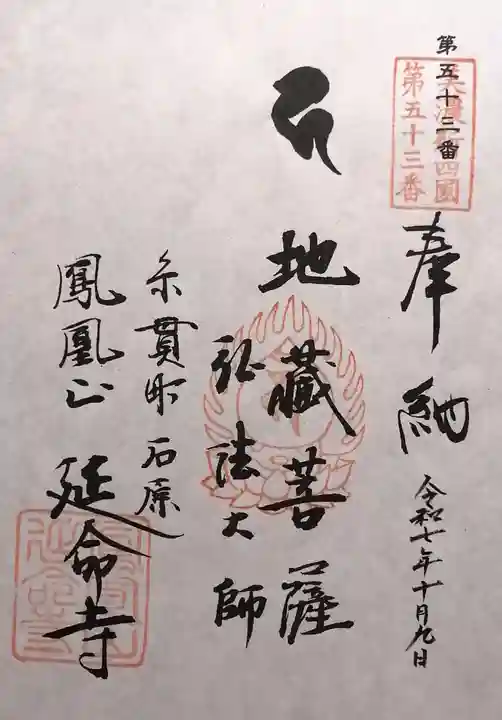 第五十三番
美濃新四國
第五十三番
奉納
令和七年十月九日
地蔵菩薩
弘法大師
糸貫町石原
鳳凰山 延命寺